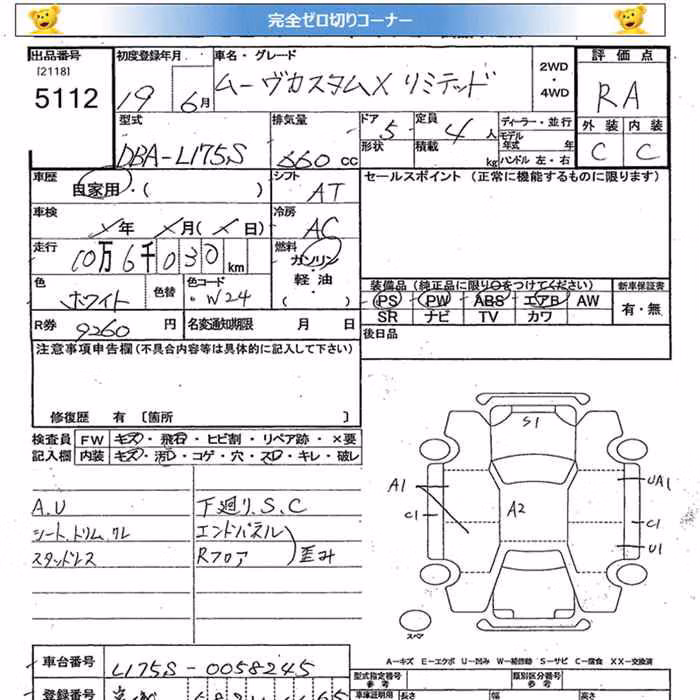 完全ゼロ切りコーナー
出品番号 初度登録年月 車名・グレード 評価点
[2118]
5112 19 6月 ムーヴカスタムX リミテッド 2WD・4WD RA
型式 排気量 ドア 定員 ディーラー・並行 外装 内装
DBA-L175S 660 cc 5 4人 モデル年式 年 C C
形状 積載 kg ハンドル 左・右
車歴 シフト セールスポイント (正常に機能するものに限ります)
自家用・( ) AT
車検 冷房
年 月( 日) AC
走行 燃料
10万6千030 km ガソリン・軽油・( )
色 色替 色コード 装備品 (純正品に限り○をつけてください) 新車保証書
ホワイト W24 PS PW ABS エアB AW 有・無
SR ナビ TV カワ
R券 9260 円 名変通知期限 月 日 後日品
注意事項申告欄 (不具合内容等は具体的に記入して下さい)
修復歴 有 [箇所 ]
検査員 FW キズ・飛石・ヒビ割・リペア跡・×要
記入欄 内装 キズ・汚レ・コゲ・穴・スレ・キレ・破レ
A.U 下廻り.S.C
シート.トリム.ワレ エンドパネル
スタッドレス Rフロア 歪み
S1
A1 UA1
C1 A2 C1
U1
スペア
A-キズ E-エクボ U-凹み W-補修跡 S-サビ C-腐食 XX-交換済
車台番号 L175S-0058245
型式指定番号 類別区分番号
参考 参考
登録番号
車庫証明用 長さ 幅 高さ